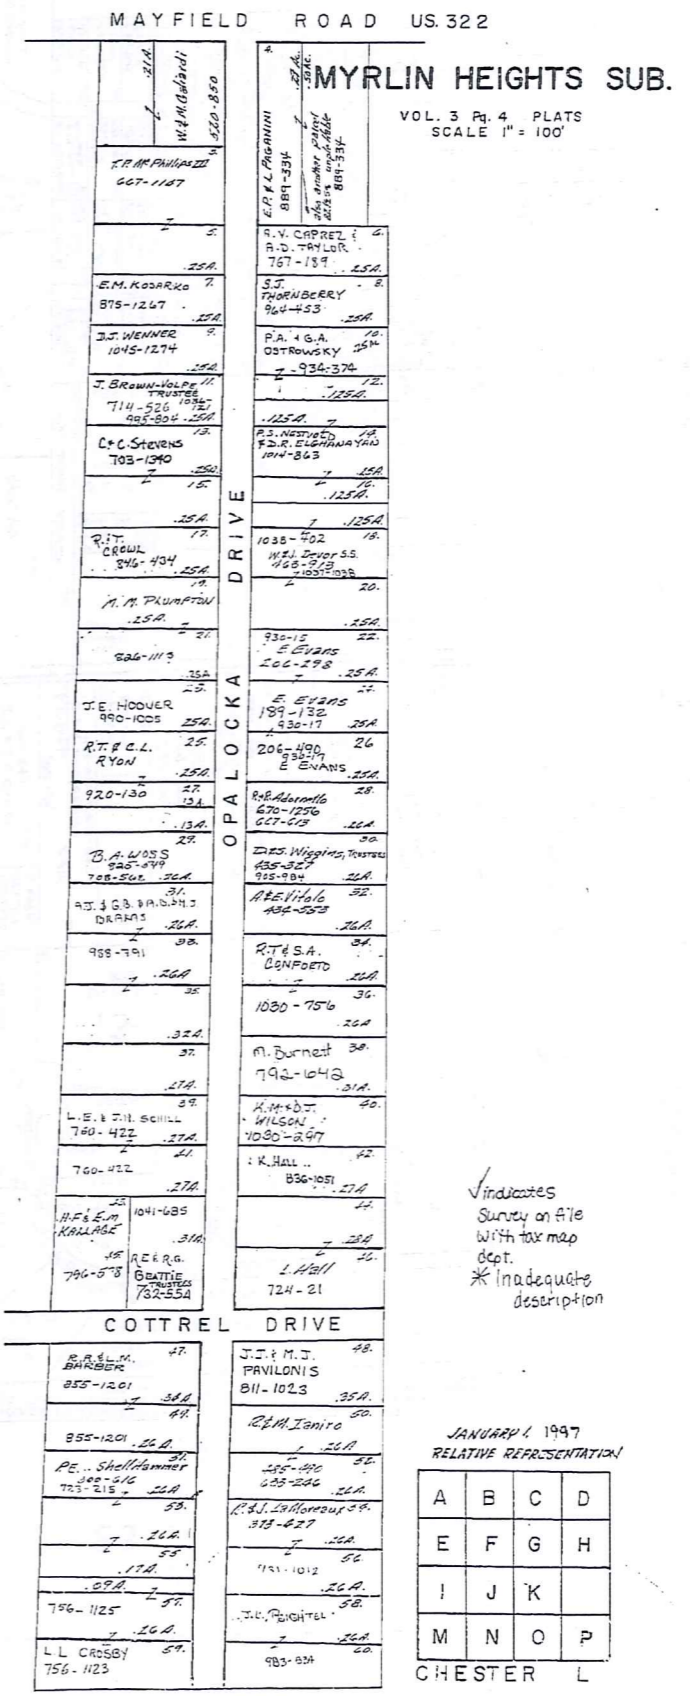 MAYFIELD ROAD US. 322
MYRLIN HEIGHTS SUB.
VOL. 3 Pg. 4 PLATS
SCALE 1" = 100'
.21A.
W. & M. Galiardi
520-850
3.
T.P. McPhillips III
667-1167
5.
.25A.
E.M. KOSARKO 7.
875-1267
.25A.
D.J. WENNER 9.
1045-1274
.25A.
J. BROWN-VOLPE 11.
TRUSTEE
714-526
995-804 .25A.
13.
C.&C. Stevens
703-1340
.25A.
15.
.25A.
17.
R.&T.
CROWL
846-434
.25A.
19.
M. M. PLUMPTON
.25A.
21.
826-1113
.25A
23.
J.E. HOOVER
990-1005 .25A.
R.T. & C.L. 25.
RYON
.25A.
920-130 27.
.13A.
.13A.
29.
B.A. WOSS
708-562 .26A.
31.
DRAPAS
.26A.
988-791 33.
.26A
35.
.32A.
37.
.27A.
39.
L.E. & J.H. SCHILL
760-422 .27A.
41.
760-422
.27A.
H.F. & E.M.
KALLAGE
1041-685
.31A.
R.E. & R.G.
BEATTIE
TRUSTEES
732-554
4.
E.P. & L. PAGANINI
889-334
also another parcel
889-334
A.V. CAPREZ & 6.
A.D. TAYLOR
767-189 .25A.
S.J. 8.
THORNBERRY
964-453
.25A.
P.A. & G.A. 10.
OSTROWSKY .25A
934-374
12.
.125A.
.125A.
P.S. NESTVOLD 14.
& D.R. ELGHANAYAN
1014-863
.25A.
16.
.125A.
.125A.
1038-402 18.
W.&J. Devor S.S.
468-913
1037-1038
20.
.25A.
930-15 22.
E. Evans
206-298
.25A.
24.
E. Evans
189-132
930-17 .25A
206-490 26
930-17
E EVANS
.25A.
28.
R.&R. Adornetto
670-1256
667-613 .26A.
30.
D.&S. Wiggins, TRUSTEES
435-327
905-984 .26A.
A.&E. Vitolo 32.
434-553
.26A.
34.
R.T & S.A.
CONFORTO
.26A.
36.
1030-756
.26A
M. Burnett 38.
792-642
.31A.
K.M. & D.J. 40.
WILSON
1030-297
42.
K. HALL
836-1051
.27A
44.
.28A
46.
L. Hall
724-21
OPALOCKA DRIVE
COTTREL DRIVE
47.
R.A. & L.M.
BARBER
855-1201
.38A
49.
855-1201 .26A.
51.
P.E. Shellhammer
723-215 .26A
53.
.26A.
55
.17A.
.09A.
57.
756-1125
.26A.
L.L CROSBY 59.
756-1123
J.J. & M.J. 48.
PAVILONIS
811-1023
.35A.
50.
R.&M. Ianiro
.26A
52.
.26A.
R.&J. LaMoreaux 54.
373-427
.26A.
56.
.26A.
58.
J.L. PEIGHTEL
.26A.
60.
983-834
✓ indicates
Survey on file
with tax map
dept.
* Inadequate
description
JANUARY 1, 1997
RELATIVE REPRESENTATION
A B C D
E F G H
I J K
M N O P
CHESTER L